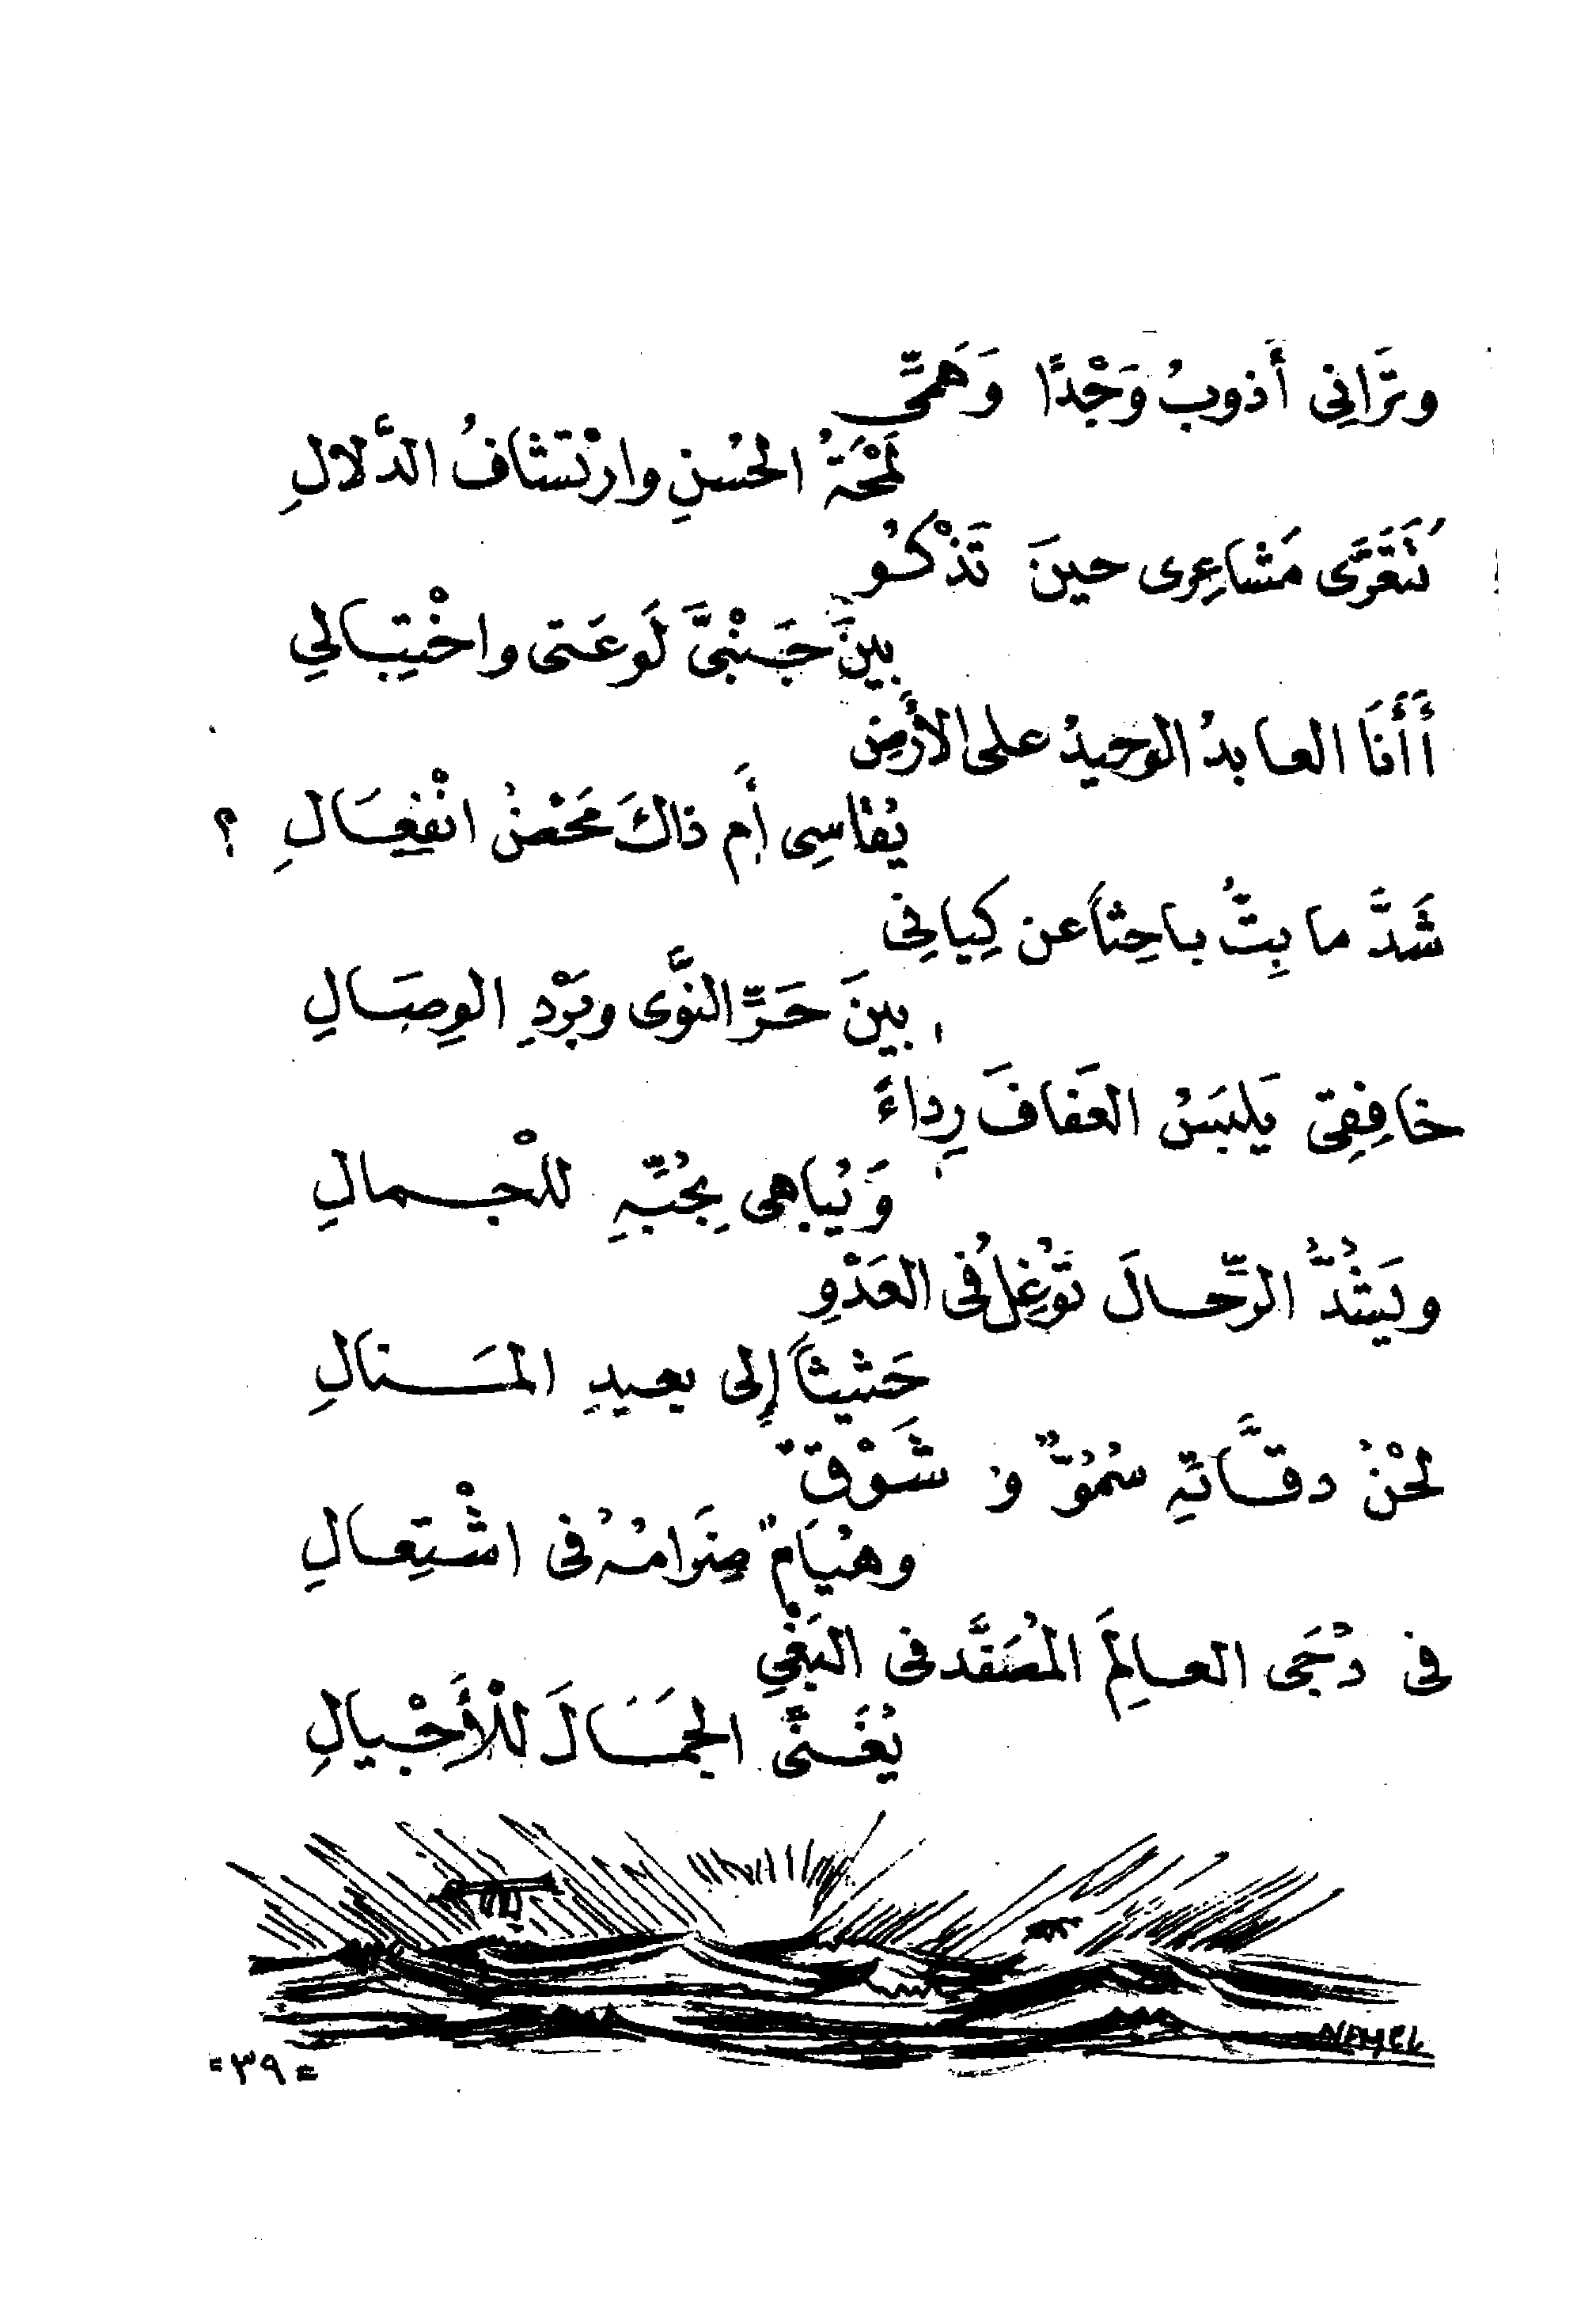 وتَرَانِى أَذوبُ وَجْدًا وَهَمِّى
لَمْحَةُ الحُسنِ وارْتشافُ الدَّلالِ
تَتَقَرَّى مَشاعِرِى حينَ تَذْكُو
بينَ جَنْبَىَّ لَوعَتى واخْتِبالي
أَأَنَا العابدُ الوحيدُ على الأَرضِ
يُقاسِى أَم ذاكَ مَحْضُ انْفِعَالِ ؟
شَدَّ ما بِتُّ باحِثاً عن كِيانِى
بينَ حَرِّ النَّوى وبَرْدِ الوِصَالِ
خافِقِى يَلبَسُ العَفافَ رِداءً
وَيُباهى بِحُبِّهِ للْجمالِ
ويَشُدُّ الرِّحالَ تُوغِلُ فى العَدْوِ
حَثيثاً إلى بعيدِ المَنالِ
لحْنُ دقَّاتِهِ سُمُوٌّ و شَوْقٌ
وهُيَامٌ ضِرَامُهُ فى اشْتِعالِ
فى دُجَى العالَمِ المُصَفَّد فى البَغْىِ
يُغَنِّى الجمَالَ للْأَجْيالِ
NEHEL
= ٣٩ =